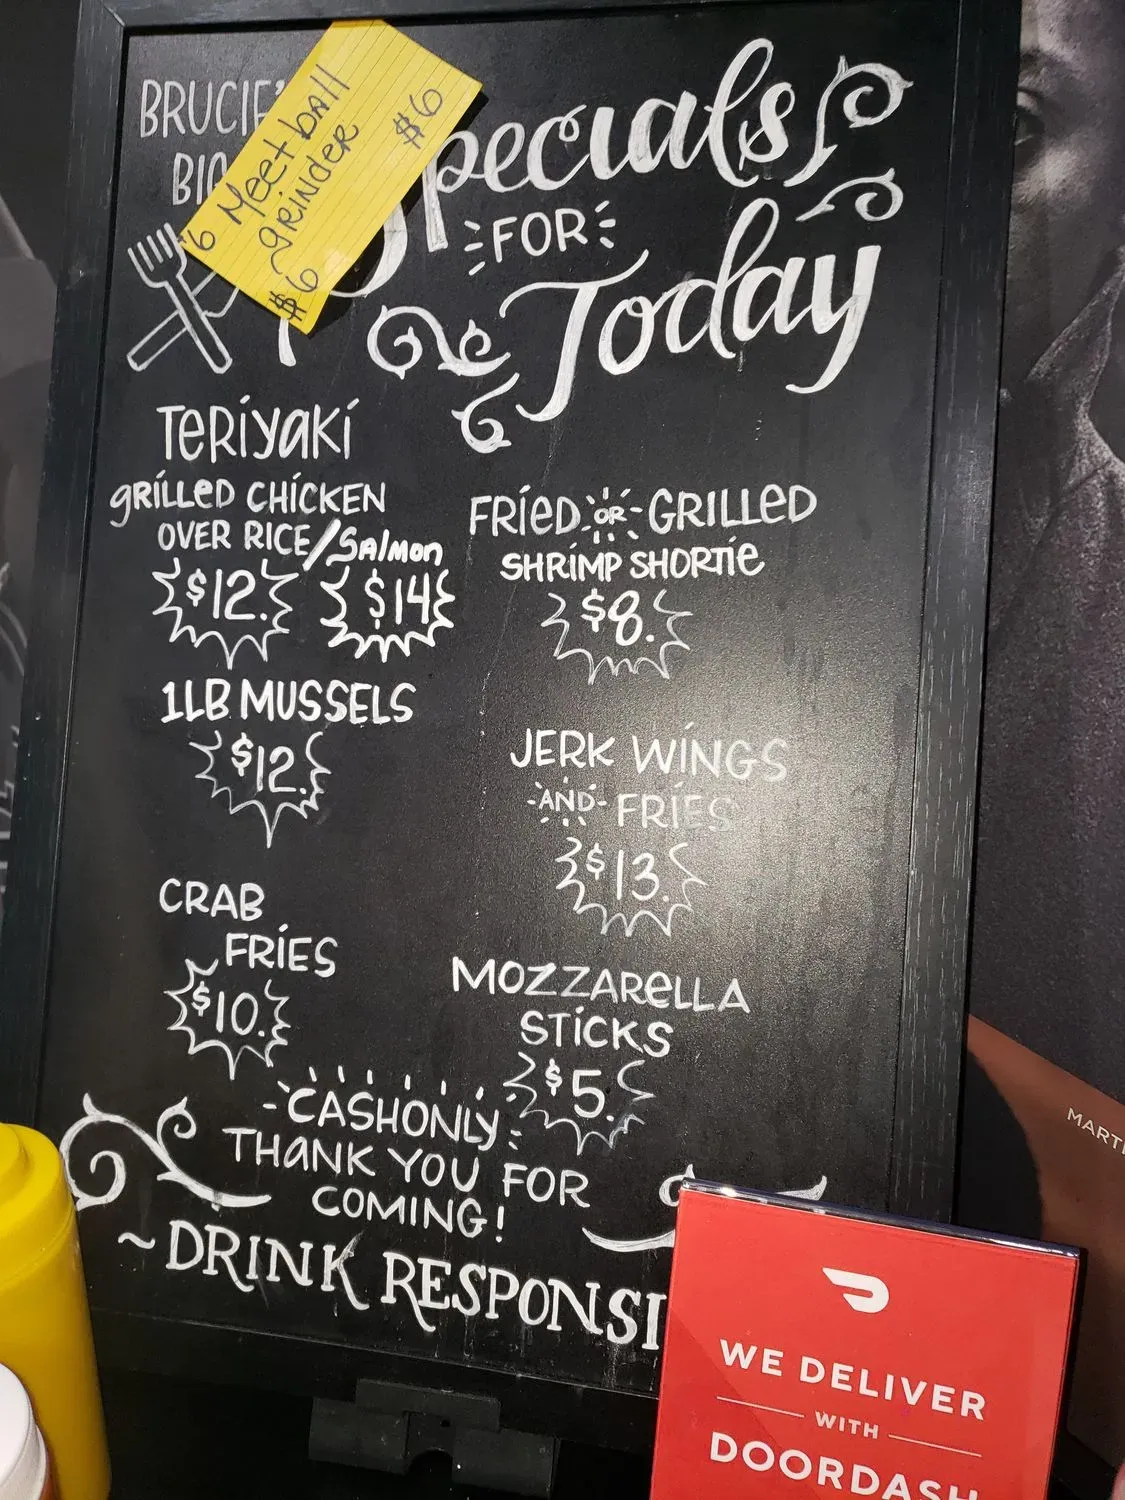 BRUCIE'
6 Meetball
grinder
$6
$6
Specials
FOR
Today
Teriyaki
grilled CHICKEN
OVER RICE/Salmon
$12. $14
1LB MUSSELS
$12.
CRAB
FRIES
$10.
FRIED OR GRILLED
SHRIMP SHORTIE
$8.
JERK WINGS
AND FRIES
$13.
MOZZARELLA
STICKS
$5.
CASH ONLY
THANK YOU FOR
COMING!
~DRINK RESPONSI
WE DELIVER
WITH
DOORDASH
MARTI